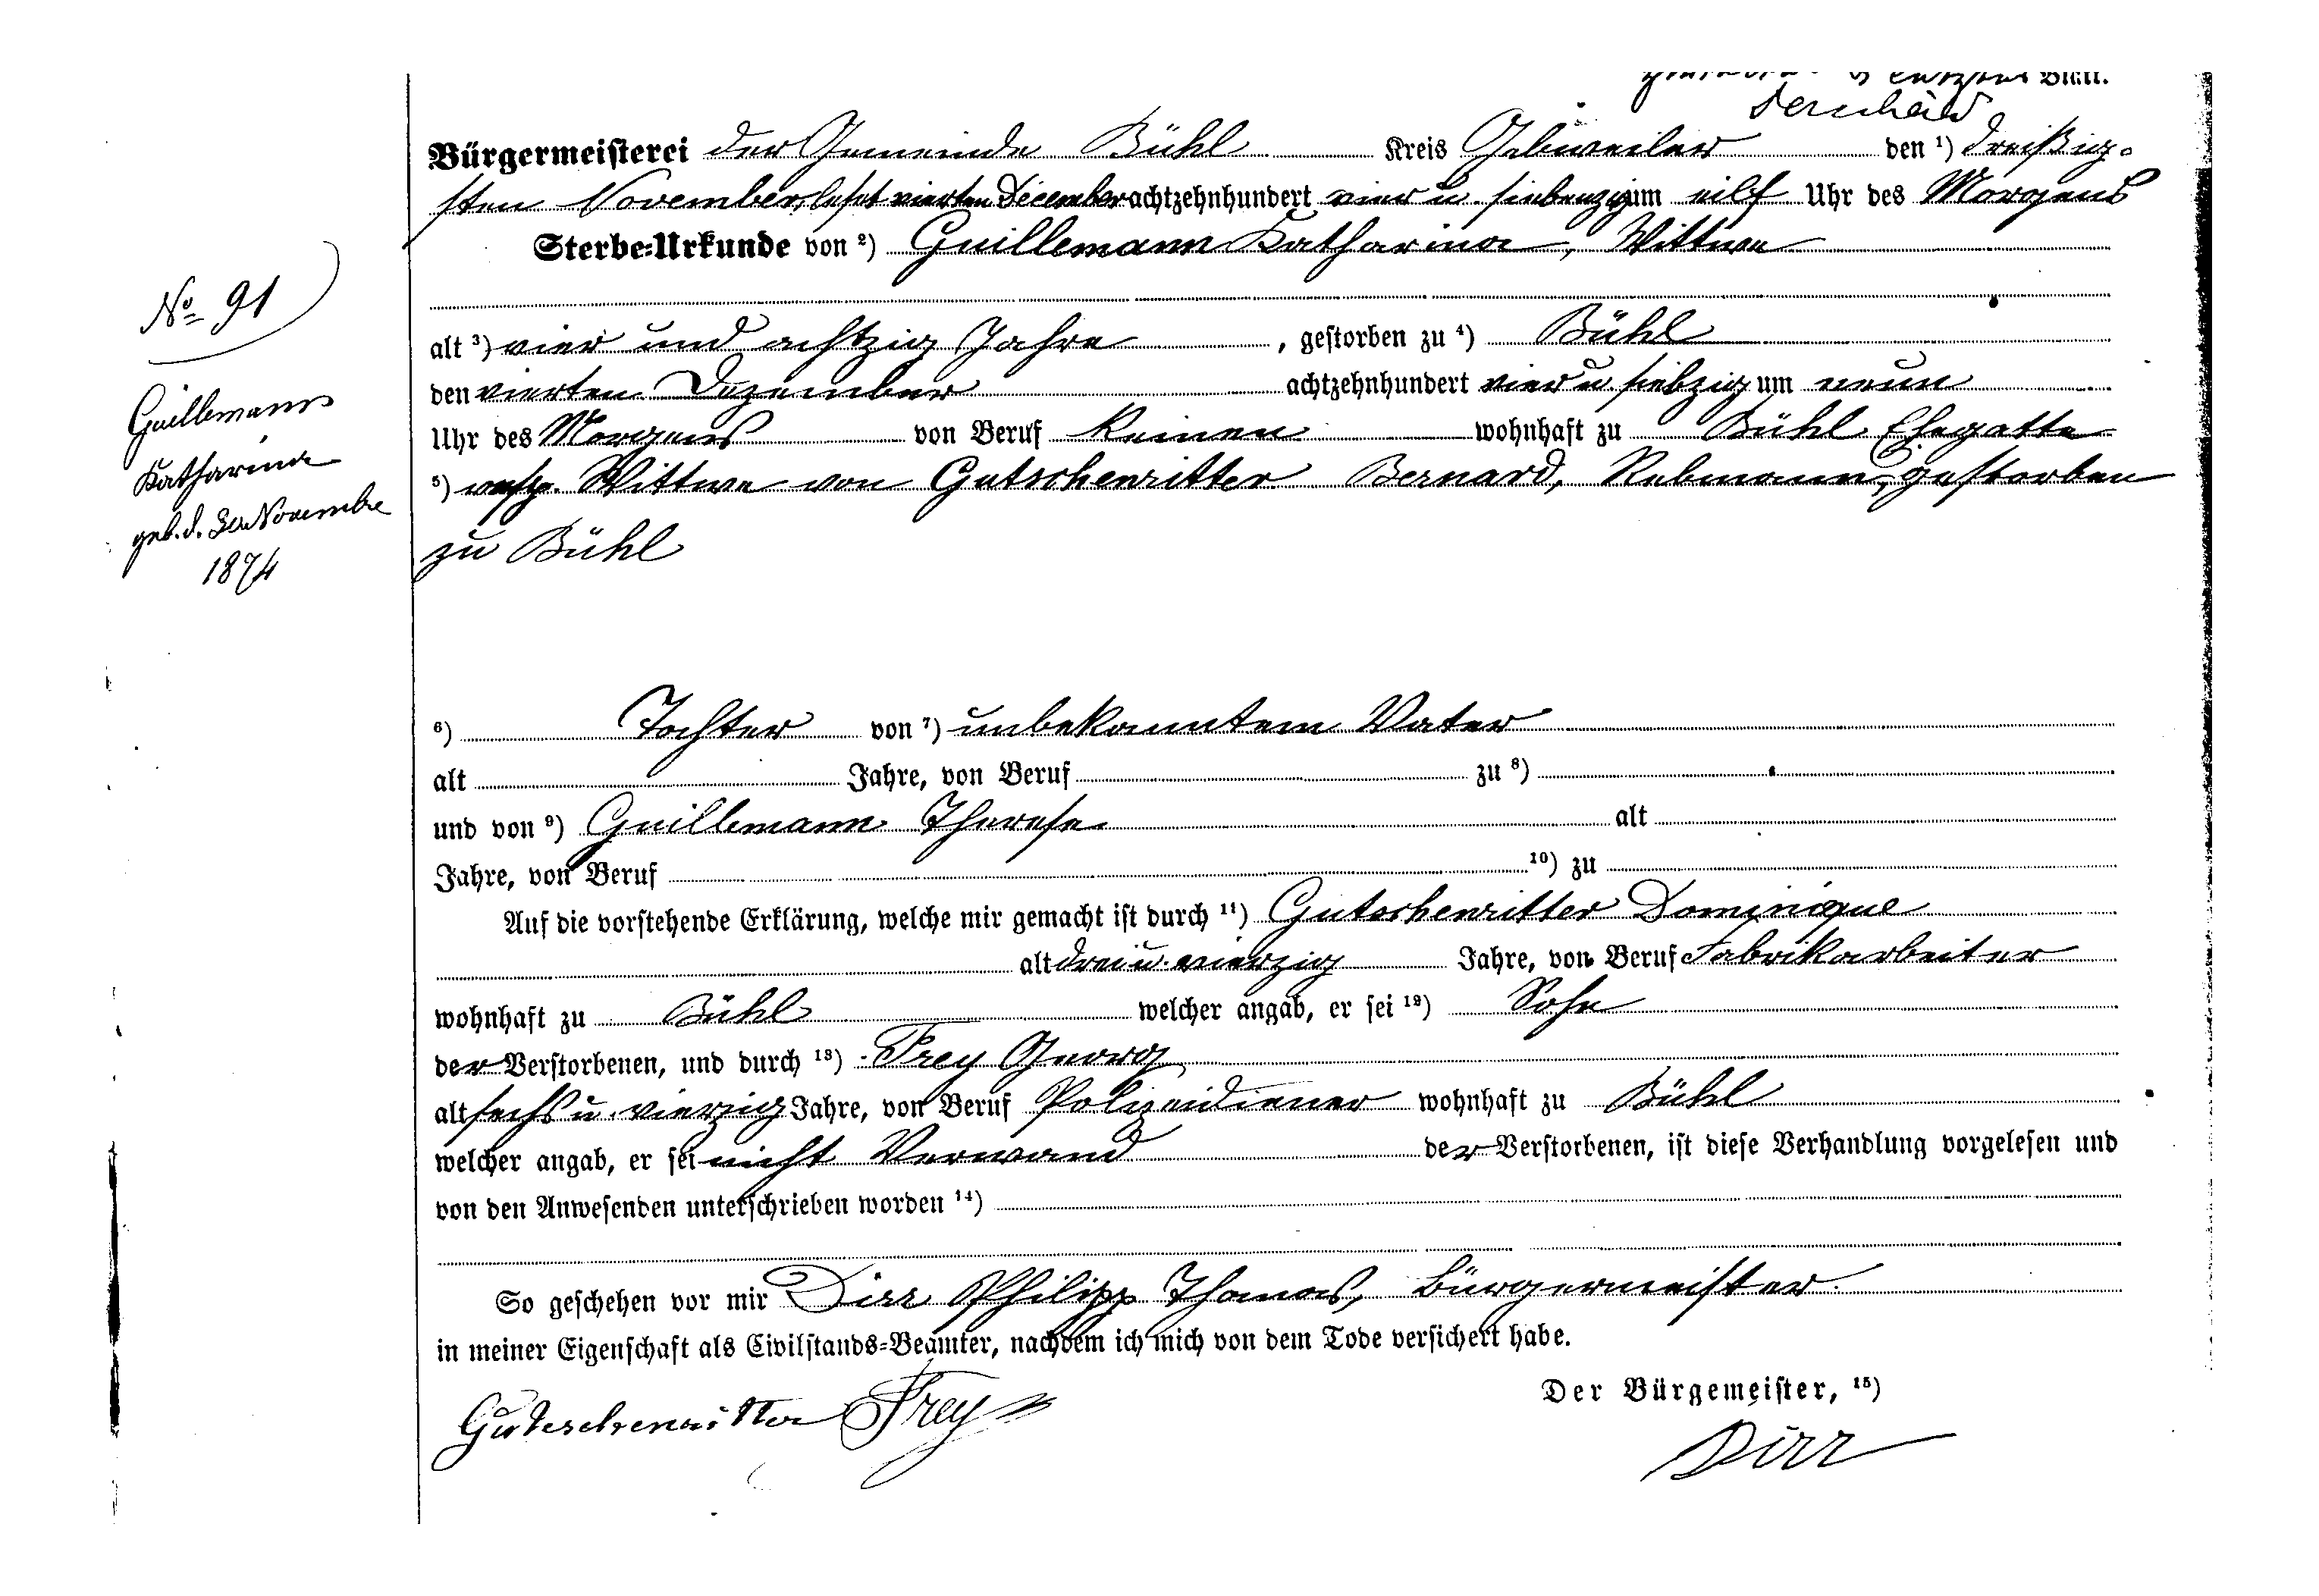 Blatt.
Bernhard
Bürgermeisterei der Gemeinde Bühl Kreis Gebweiler den ¹) dreißig-
sten November, lest vierten December achtzehnhundert vier u. siebenzig um eilf Uhr des Morgens
Sterbe-Urkunde von ²) Guillemann Katharina, Wittwe
alt ³) vier und achtzig Jahre, gestorben zu ⁴) Bühl
den vierten Dezember achtzehnhundert vier u. siebzig um neun
Uhr des Morgens von Beruf keinen wohnhaft zu Bühl Ehegatte
⁵) resp. Wittwe von Gutschenritter Bernard, Rebmann, gestorben
zu Bühl
Nº 91
Guillemann
Katharina
geb. d. Novembre
1874
⁶) Tochter von ⁷) unbekanntem Vater
alt Jahre, von Beruf zu ⁸)
und von ⁹) Guillemann Therese alt
Jahre, von Beruf ¹⁰) zu
Auf die vorstehende Erklärung, welche mir gemacht ist durch ¹¹) Gutschenritter Dominique
alt drei u. vierzig Jahre, von Beruf Fabrikarbeiter
wohnhaft zu Bühl welcher angab, er sei ¹²) Sohn
der Verstorbenen, und durch ¹³) Frey Georg
alt sechs u. vierzig Jahre, von Beruf Polizeidiener wohnhaft zu Bühl
welcher angab, er sei nicht Verwand der Verstorbenen, ist diese Verhandlung vorgelesen und
von den Anwesenden unterschrieben worden ¹⁴)
So geschehen vor mir Dirr Philipp Thomas, Bürgermeister
in meiner Eigenschaft als Civilstands-Beamter, nachdem ich mich von dem Tode versichert habe.
Der Bürgemeister, ¹⁵)
Gutschenritter Frey
Dirr